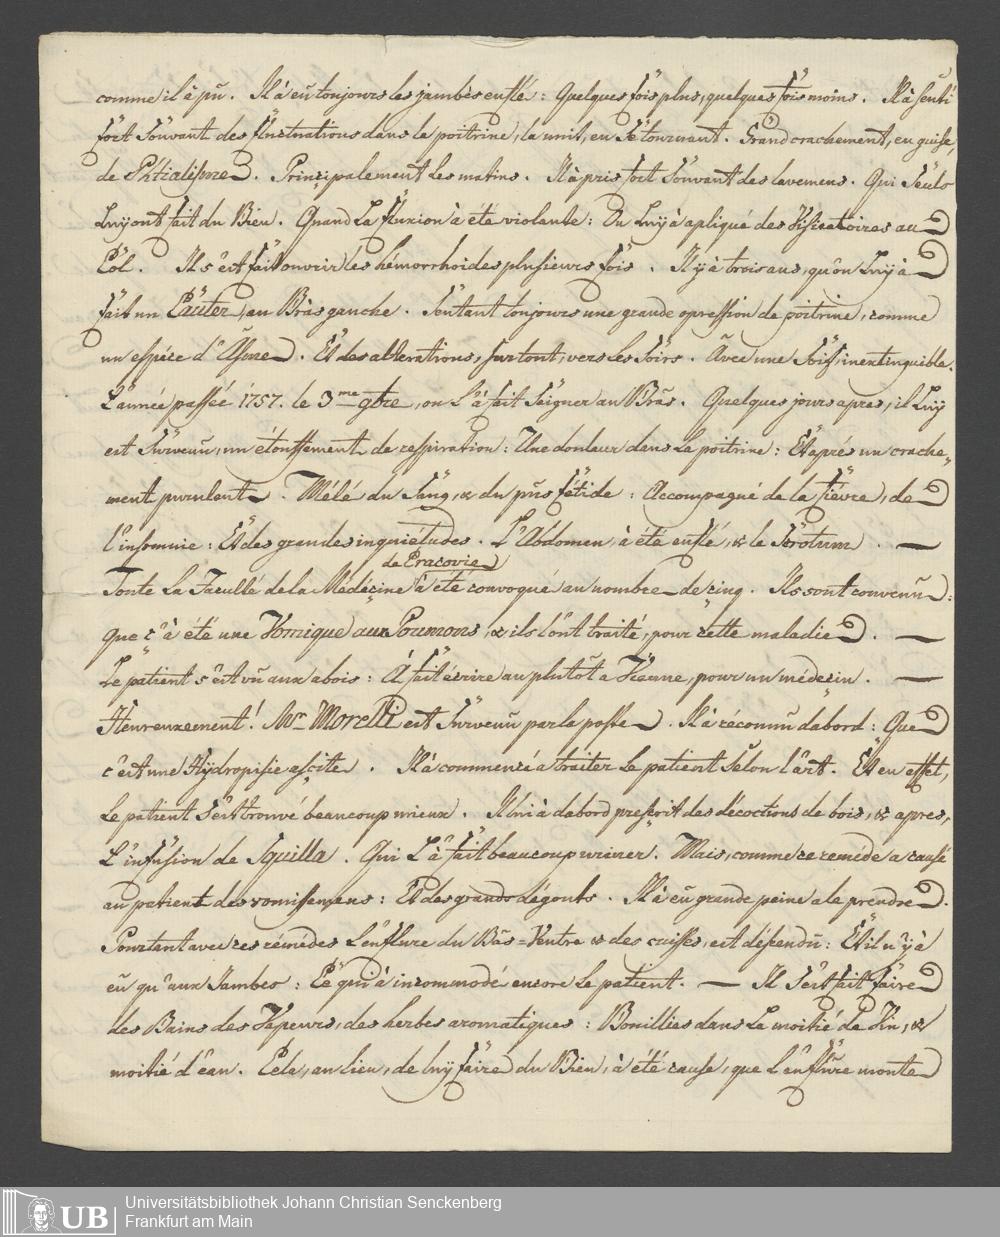 comme il a pû. Il à eû toujours les jambes enflé: Quelques fois plus, quelques fois moins. Il à senti
fort souvent des fluctuations dans la poitrine, la nuit, en se tournant. Grand crachement, en guise,
de Phtialisme. Principalement les matins. Il à pris fort souvent des lavemens. Qui seuls
Luy ont fait du Bien. Quand La fluxion à été violante: On Luy à apliqué des Visicatoires au
Col. Il s'est fait ouvrir les hémorrhoides plusieurs fois. Il y à trois ans, qu'on Luy à
fait un Cauter, au Bras gauche. Sentant toujours une grande opression de poitrine, comme
un espéce d'Asme. Et des alterations, surtout, vers les soirs. Avec une Soif, inextinguible.
L'année passée 1757. le 3me 9bre, on L'à fait Seigner au Bras. Quelques jours apres, il Luy
est Survenu, un étouffement de respiration: Une douleur dans La poitrine: Et aprés un crache-
ment purulent. Mélé du Sang, & du pus fétide: Accompagné de la fiévre, de
l'insomnie: Et des grandes inquiétudes. L'Abdomen, à été enflé, & le Scrotum. —
de Cracovie
Toute La Faculté de la Médecine à été convoqué au nombre de cinq. Ils sont convenu:
que c'à été une Vomique aux Poumons, & ils l'ont traité, pour cette maladie. —
Le patient s'est vû aux abois: À fait écrire au plutôt a Vienne, pour un médecin. —
Heureuxement! Mr Morelli est Survenu par la poste. Il à réconnu d'abord: Que
c'est une Hydropisie ascite. Il à commencé a traiter Le patient Selon l'art. Et en effet,
Le patient S'est trouvé beaucoup mieux. Il lui à dabord prescrit des décoctions de bois, & apres,
L'infusion de Squilla. Qui L'à fait beaucoup uriner. Mais, comme ce reméde a causé
au patient des vomissemens: Et des grands dégouts. Il à eû grande peine a le prendre.
Pourtant avec ces rémédes L'enflure du Bas=Ventre & des cuisses, est désendu: Et il n'y à
eû qu'aux Jambes: Ce qui à incommodé encore Le patient. — Il S'est fait faire
des Bains des Vapeurs, des herbes aromatiques: Bouillies dans La moitié de Vin, &
moitié d'eau. Cela, au lieu, de luy faire du Bien, à été cause, que L'enflure monte
Universitätsbibliothek Johann Christian Senckenberg
Frankfurt am Main
UB